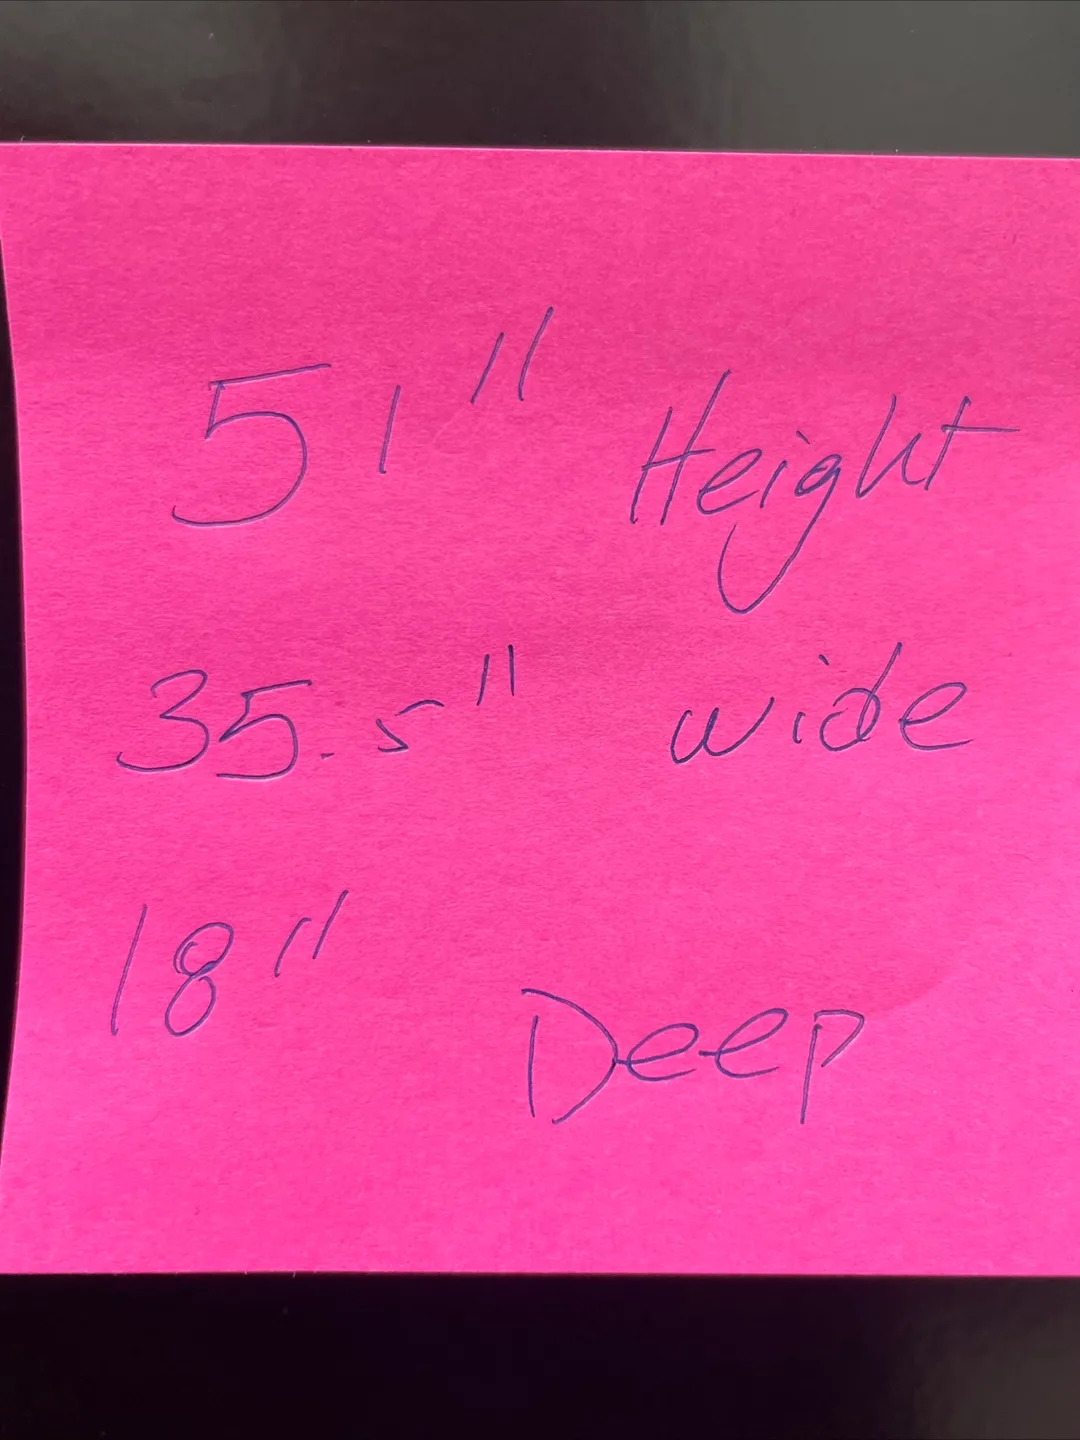 51" Height
35.5" wide
18" Deep